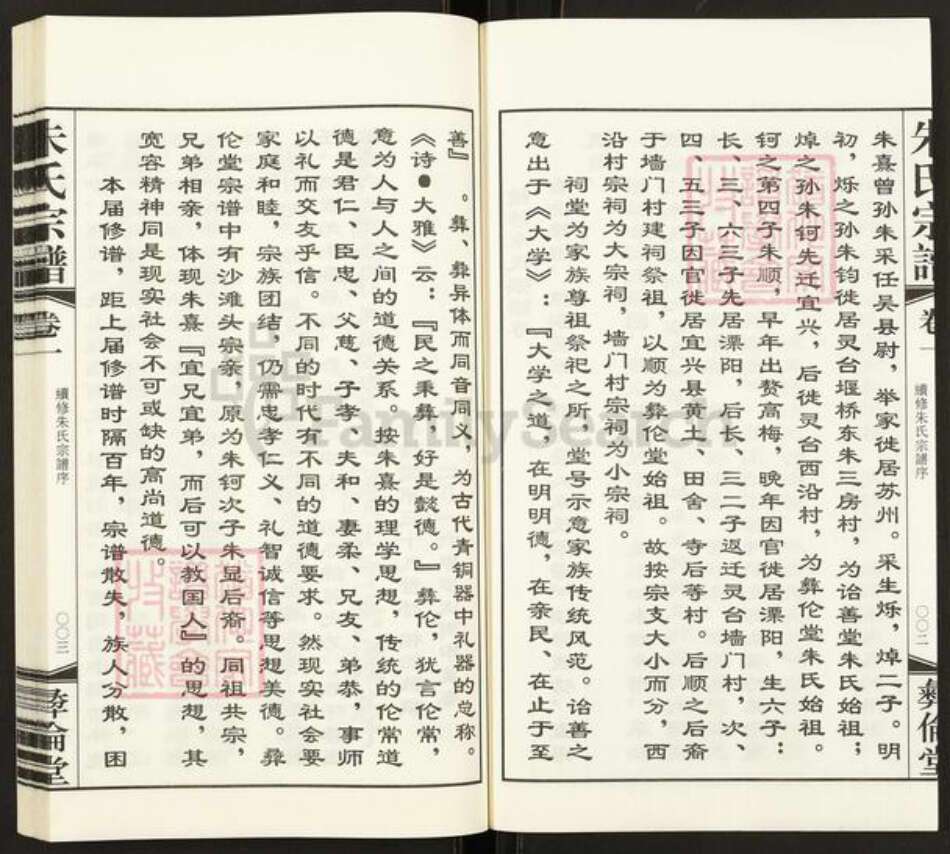 朱氏宗譜
卷一
續修朱氏宗譜序
〇〇二
彝倫堂
朱熹曾孙朱采任吴县尉，举家徙居苏州。采生烁，焯二子。明
初，烁之孙朱钧徙居灵台堰桥东朱三房村，为诒善堂朱氏始祖；
焯之孙朱钶先迁宜兴，后徙灵台西沿村，为彝伦堂朱氏始祖。
钶之第四子朱顺，早年出赘高梅，晚年因官徙居溧阳，生六子：
长、三、六三子先居溧阳，后长、三二子返迁灵台墙门村，次、
四、五三子因官徙居宜兴县黄土、田舍、寺后等村。后顺之后裔
于墙门村建祠祭祖，以顺为彝伦堂始祖。故按宗支大小而分，西
沿村宗祠为大宗祠，墙门村宗祠为小宗祠。
祠堂为家族尊祖祭祀之所，堂号示意家族传统风范。诒善之
意出于《大学》：『大学之道，在明明德，在亲民、在止于至
善』。彝、彜异体而同音同义，为古代青铜器中礼器的总称。
《诗●大雅》云：『民之秉彝，好是懿德。』彝伦，犹言伦常，
意为人与人之间的道德关系。按朱熹的理学思想，传统的伦常道
德是君仁、臣忠、父慈、子孝、夫和、妻柔、兄友、弟恭，事师
以礼而交友乎信。不同的时代有不同的道德要求。然现实社会要
家庭和睦，宗族团结，仍需忠孝仁义、礼智诚信等思想美德。彝
伦堂宗谱中有沙滩头宗亲，原为朱钶次子朱显后裔。同祖共宗，
兄弟相亲，体现朱熹『宜兄宜弟，而后可以教国人』的思想，其
宽容精神同是现实社会不可或缺的高尚道德。
本届修谱，距上届修谱时隔百年，宗谱散失，族人分散，因
朱氏宗譜
卷一
續修朱氏宗譜序
〇〇三
彝倫堂
FamilySearch